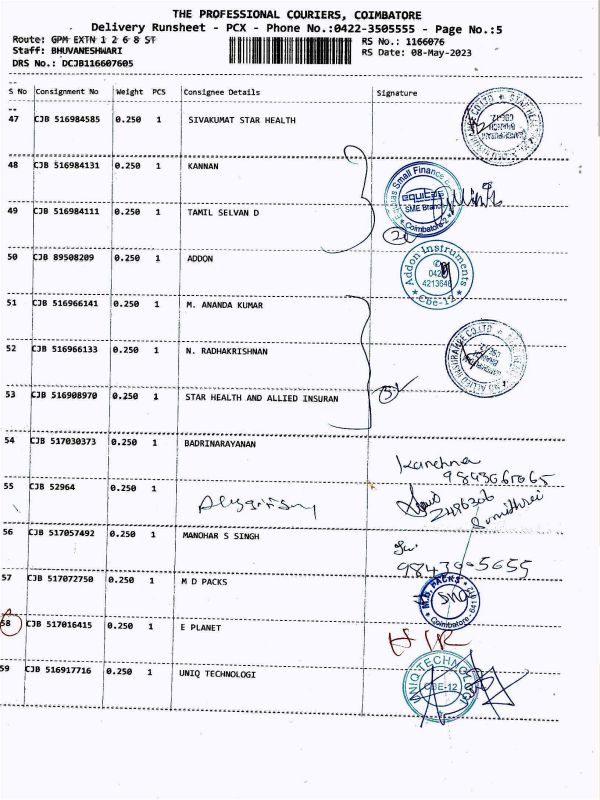 THE PROFESSIONAL COURIERS, COIMBATORE
Delivery Runsheet - PCX - Phone No.:0422-3505555 - Page No.:5
Route: GPM EXTN 1 2 6 8 ST RS No.: 1166076
Staff: BHUVANESHWARI RS Date: 08-May-2023
DRS No.: DCJB116607605
S No Consignment No Weight PCS Consignee Details Signature
47 CJB 516984585 0.250 1 SIVAKUMAT STAR HEALTH
48 CJB 516984131 0.250 1 KANNAN
Equitas Small Finance
equitas
SME Branch
Coimbatore-2
49 CJB 516984111 0.250 1 TAMIL SELVAN D
50 CJB 89508209 0.250 1 ADDON
Addon Instruments
Cbe-12
51 CJB 516966141 0.250 1 M. ANANDA KUMAR
52 CJB 516966133 0.250 1 N. RADHAKRISHNAN
53 CJB 516908970 0.250 1 STAR HEALTH AND ALLIED INSURAN
54 CJB 517030373 0.250 1 BADRINARAYANAN
Kanchna
9843061065
55 CJB 52964 0.250 1
2486306
Sumithrei
56 CJB 517057492 0.250 1 MANOHAR S SINGH
98439-5655
57 CJB 517072750 0.250 1 M D PACKS
M.D. PACKS
Coimbatore
58 CJB 517016415 0.250 1 E PLANET
59 CJB 516917716 0.250 1 UNIQ TECHNOLOGI
UNIQ TECHNOLOGI
CBE-12